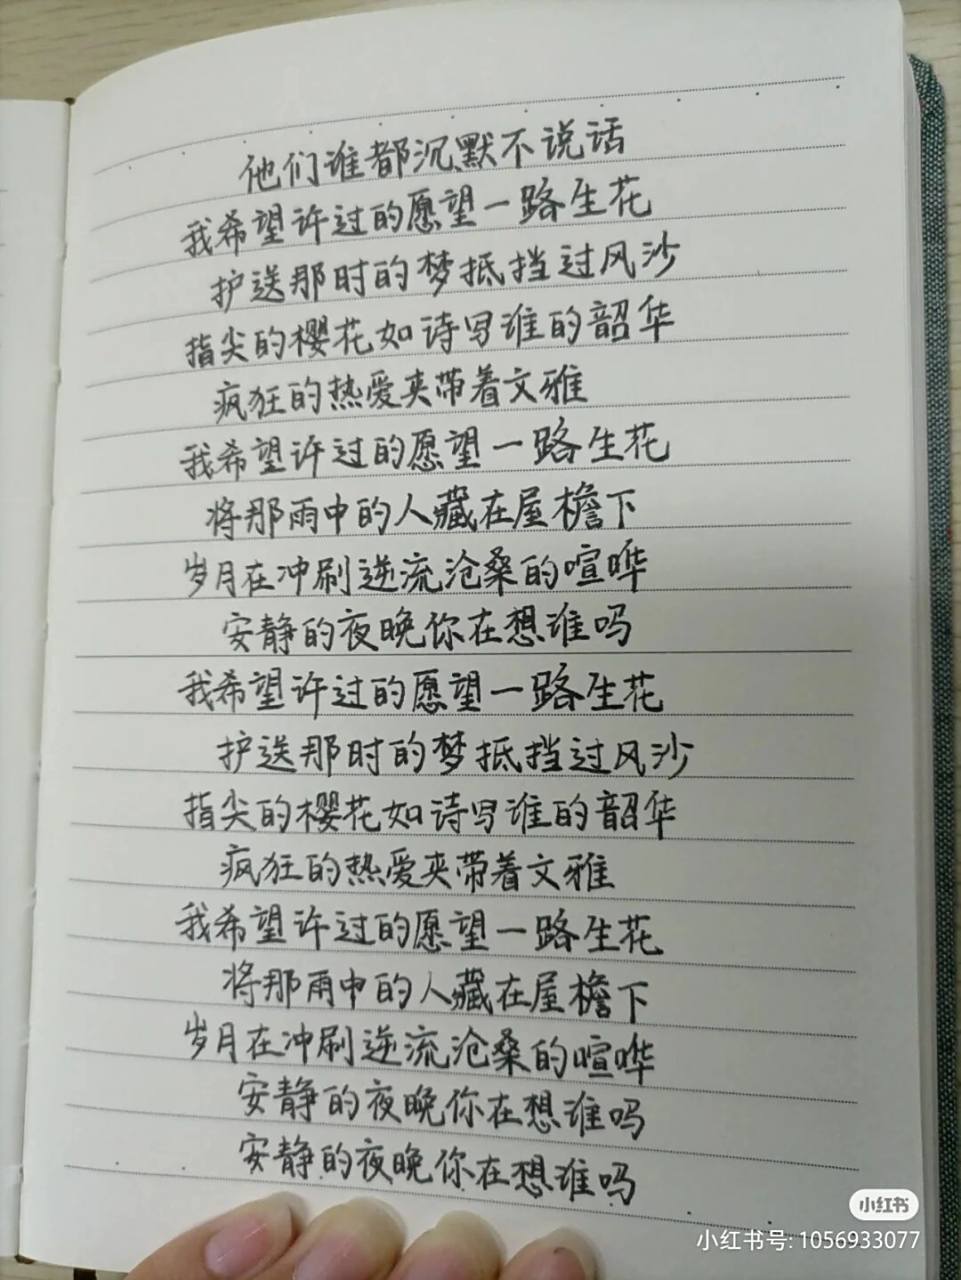 他们谁都沉默不说话
我希望许过的愿望一路生花
护送那时的梦抵挡过风沙
指尖的樱花如诗写谁的韶华
疯狂的热爱夹带着文雅
我希望许过的愿望一路生花
将那雨中的人藏在屋檐下
岁月在冲刷逆流沧桑的喧哗
安静的夜晚你在想谁吗
我希望许过的愿望一路生花
护送那时的梦抵挡过风沙
指尖的樱花如诗写谁的韶华
疯狂的热爱夹带着文雅
我希望许过的愿望一路生花
将那雨中的人藏在屋檐下
岁月在冲刷逆流沧桑的喧哗
安静的夜晚你在想谁吗
安静的夜晚你在想谁吗
小红书
小红书号: 1056933077